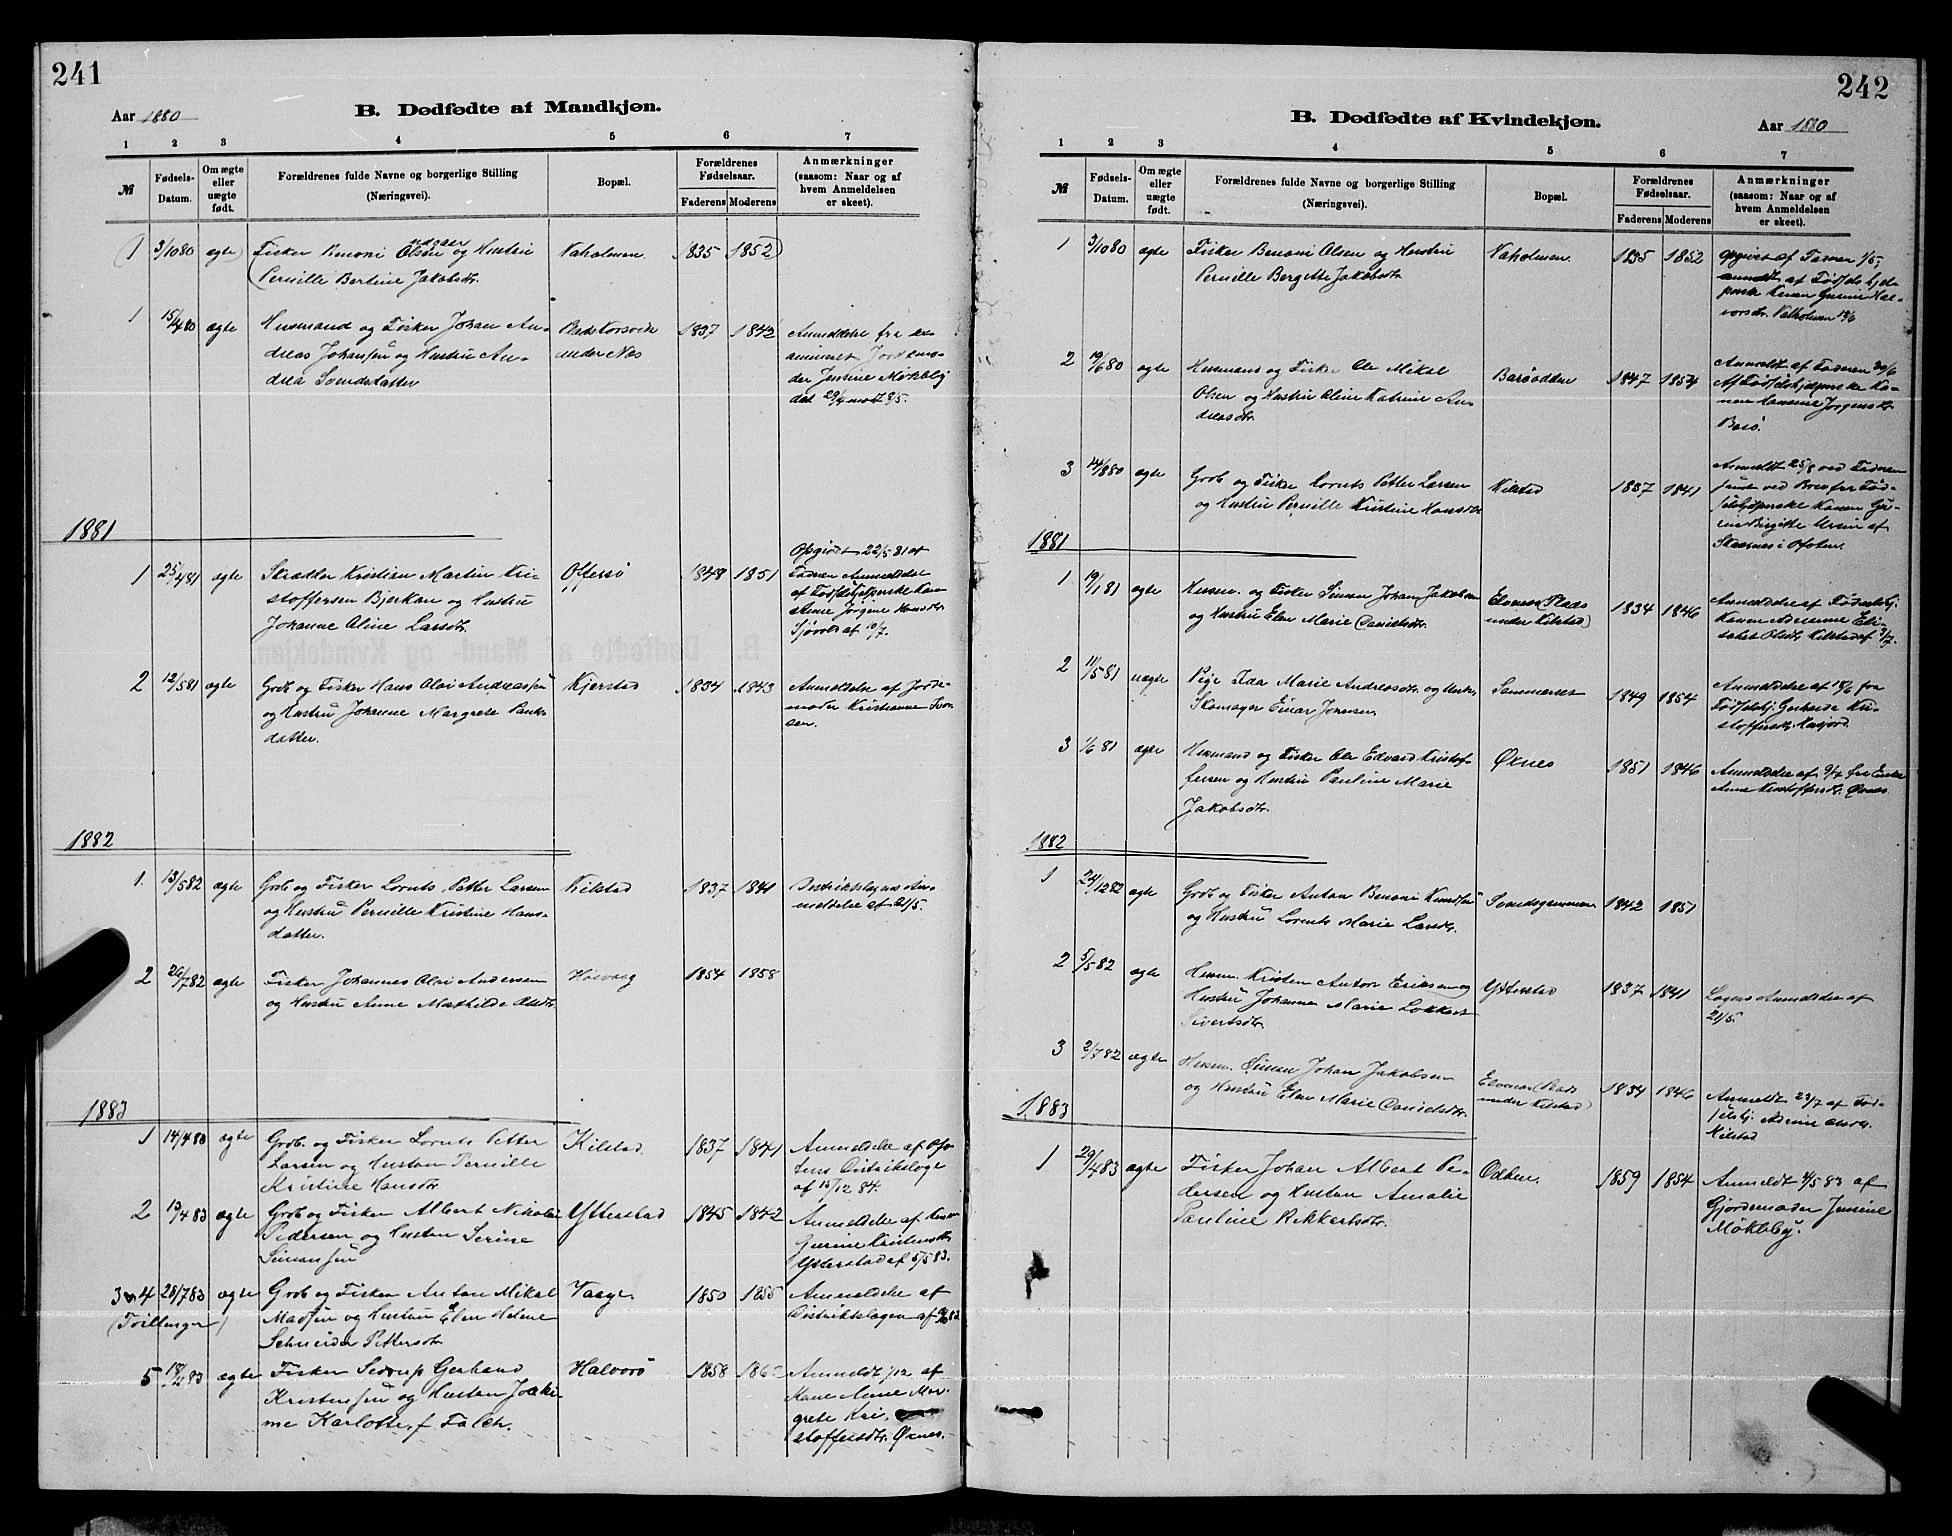 241
Aar 1880
B. Dødfødte af Mandkjøn.
1 2 3 4 5 6 7
№
Fødsels-
Datum.
Om ægte
eller
uægte
født.
Forældrenes fulde Navne og borgerlige Stilling
(Næringsvei).
Bopæl.
Forældrenes
Fødselsaar.
Faderens Moderens
Anmærkninger
(saasom: Naar og af
hvem Anmeldelsen
er skeet).
(1 3/10 80 ægte) Fisker Benoni Olsen og Hustru Naholmen 1835 1852)
(Pernille Bertine Jakobsdtr.
1 15/4 80 ægte Husmand og Fisker Johan An- 1837 1842 Anmeldelse fra ex-
dreas Johansen og Hustru An- under Næs amineret Jordemo-
drea Svendsdatter der Jensine Mökleby
dat 29/4 modt 8/5.
1881
1 25/4 81 ægte Skrædder Kristian Martin Kri- Offersø 1848 1851 Opgivet 22/5 81 af
stoffersen Bjerkan og Hustru Faderen Anmeldelse
Johanne Oline Larsdtr. af Fødselshjelperske
Anne Jørgine Hansdtr.
af 10/7.
2 12/5 81 ægte Grdb og Fisker Hans Olai Andreassen Kjerstad 1834 1843 Anmeldelse af Jorde-
og Hustru Johanne Margrete moder Kristianne
datter. sen.
1882
1. 13/5 82 ægte Grdb og Fisker Lornts Petter Larsen Kilstad 1837 1841 Distriktslægens An-
og Hustru Pernille Kristine Hans- meldelse af 21/5.
datter.
2 26/7 82 ægte Fisker Johannes Olai Andersen 1854 1858
og Hustru Anne Mathilde Olsdtr.
1883
1 14/4 83 ægte Grdb. og Fisker Lornts Petter Kilstad 1837 1841 Anmeldelse af Ofo-
Larsen og Hustru Pernille tens Distriktslæge
Kristine Hansdtr af 15/12 84.
2 19/4 83 ægte Grdb og Fisker Albert Nikolai Ytterstad 1845 1842 Anmeldelse af
Pedersen og Hustru Serine Gjerine Kristensdtr
Simonsen Ytterstad af 5/5 83.
3 og 4 28/7 83 ægte Grdb og Fisker Anton Mikal Vaage. 1850 1855 Anmeldelse af
(Tvillinger) Madsen og Hustru Elen Helene Distriktslægen
Schneider Pettersdtr
5 83 ægte Fisker Gerhard Halvorø 1858 Anmeldt /12 af
Kristensen og Hustru Joaki- Kone Anne Mar-
me Karlotte f. Falch. grete Kri-
stoffersdtr. Øxnes.
242
B. Dødfødte af Kvindekjøn.
Aar 1880
1 2 3 4 5 6 7
№
Fødsels-
Datum.
Om ægte
eller
uægte
født.
Forældrenes fulde Navne og borgerlige Stilling
(Næringsvei).
Bopæl.
Forældrenes
Fødselsaar.
Faderens Moderens
Anmærkninger
(saasom: Naar og af
hvem Anmeldelsen
er skeet).
1 3/10 80 ægte Fisker Benoni Olsen og Hustru Naholmen 1835 1852 opgivet af Faderen
Pernille Bergitte Jakobsdtr anmeldt af Fødselshjel-
perske Konen Gurine Hal-
vorsdtr.
2 19/6 80 ægte Husmand og Fisker Ole Mikal Barøodden 1847 1854 Anmeldt af Faderen 20/6
Olsen og Hustru Oline Katrine An- af Fødselshjelperske Ko-
dreasdtr. nen Hansine Jørgensdtr
Barø.
3 14/8 80 ægte Grdb og Fisker Lornts Petter Larsen Kilstad 1837 1841 Anmeldt 25/8 ved Faderen
og Hustru Pernille Kristine Hansdtr samt ved Brev fra Fød-
selshjelperske Konen
Birgitte af
Skarnes i Ofoten.
1881
1 19/1 81 ægte Husm. og Fisker Simon Johan Jakobsen Elvenes Plads 1834 1846 Anmeldelse af Fødselshj.
og Hustru Elen Marie Danielsdtr. under Kilstad Konen Eli-
sabet Olsdtr. Kilstad af 3/7.
2 11/5 81 uægte Pige Ida Marie Andreasdtr. og Sommersæt 1849 1854 Anmeldelse af 18/6 fra
Skomager Einar Johnsen. Fødselshj. Gerharde Kri-
stoffersdtr.
3 1/6 81 ægte Husmand og Fisker Ole Edvard Kristof- Øxnes 1851 1846 Anmeldelse af 9/7 fra Enke
fersen og Hustru Pauline Marie Anne Kristoffersdtr. Øxnes
Jakobsdtr.
1882
1 24/12 82 ægte Grdb og Fisker Anton Benoni Knudsen 1842 1851
og Hustru Lornts Marie Larsdtr.
2 5/5 82 ægte Husm. Kristen Anton Eriksen og Ytterstad 1837 1841 Lægens Anmeldelse af
Hustru Johanne Marie Lokkert 21/5.
Sivertsdtr.
3 2/7 82 ægte Husm. Simon Johan Jakobsen Elvenes (Plads 1834 1846 Anmeldt 23/7 af Fød-
og Hustru Elen Marie Danielsdtr. under Kilstad) selshj.
Kilstad
1883
1 29/4 83 ægte Fisker Johan Albert Pe- Odden. 1859 1854 Anmeldt 4/5 83 af
dersen og Hustru Amalie Gjordemoder Jensine
Pauline Rikkertsdtr. Mökleby.